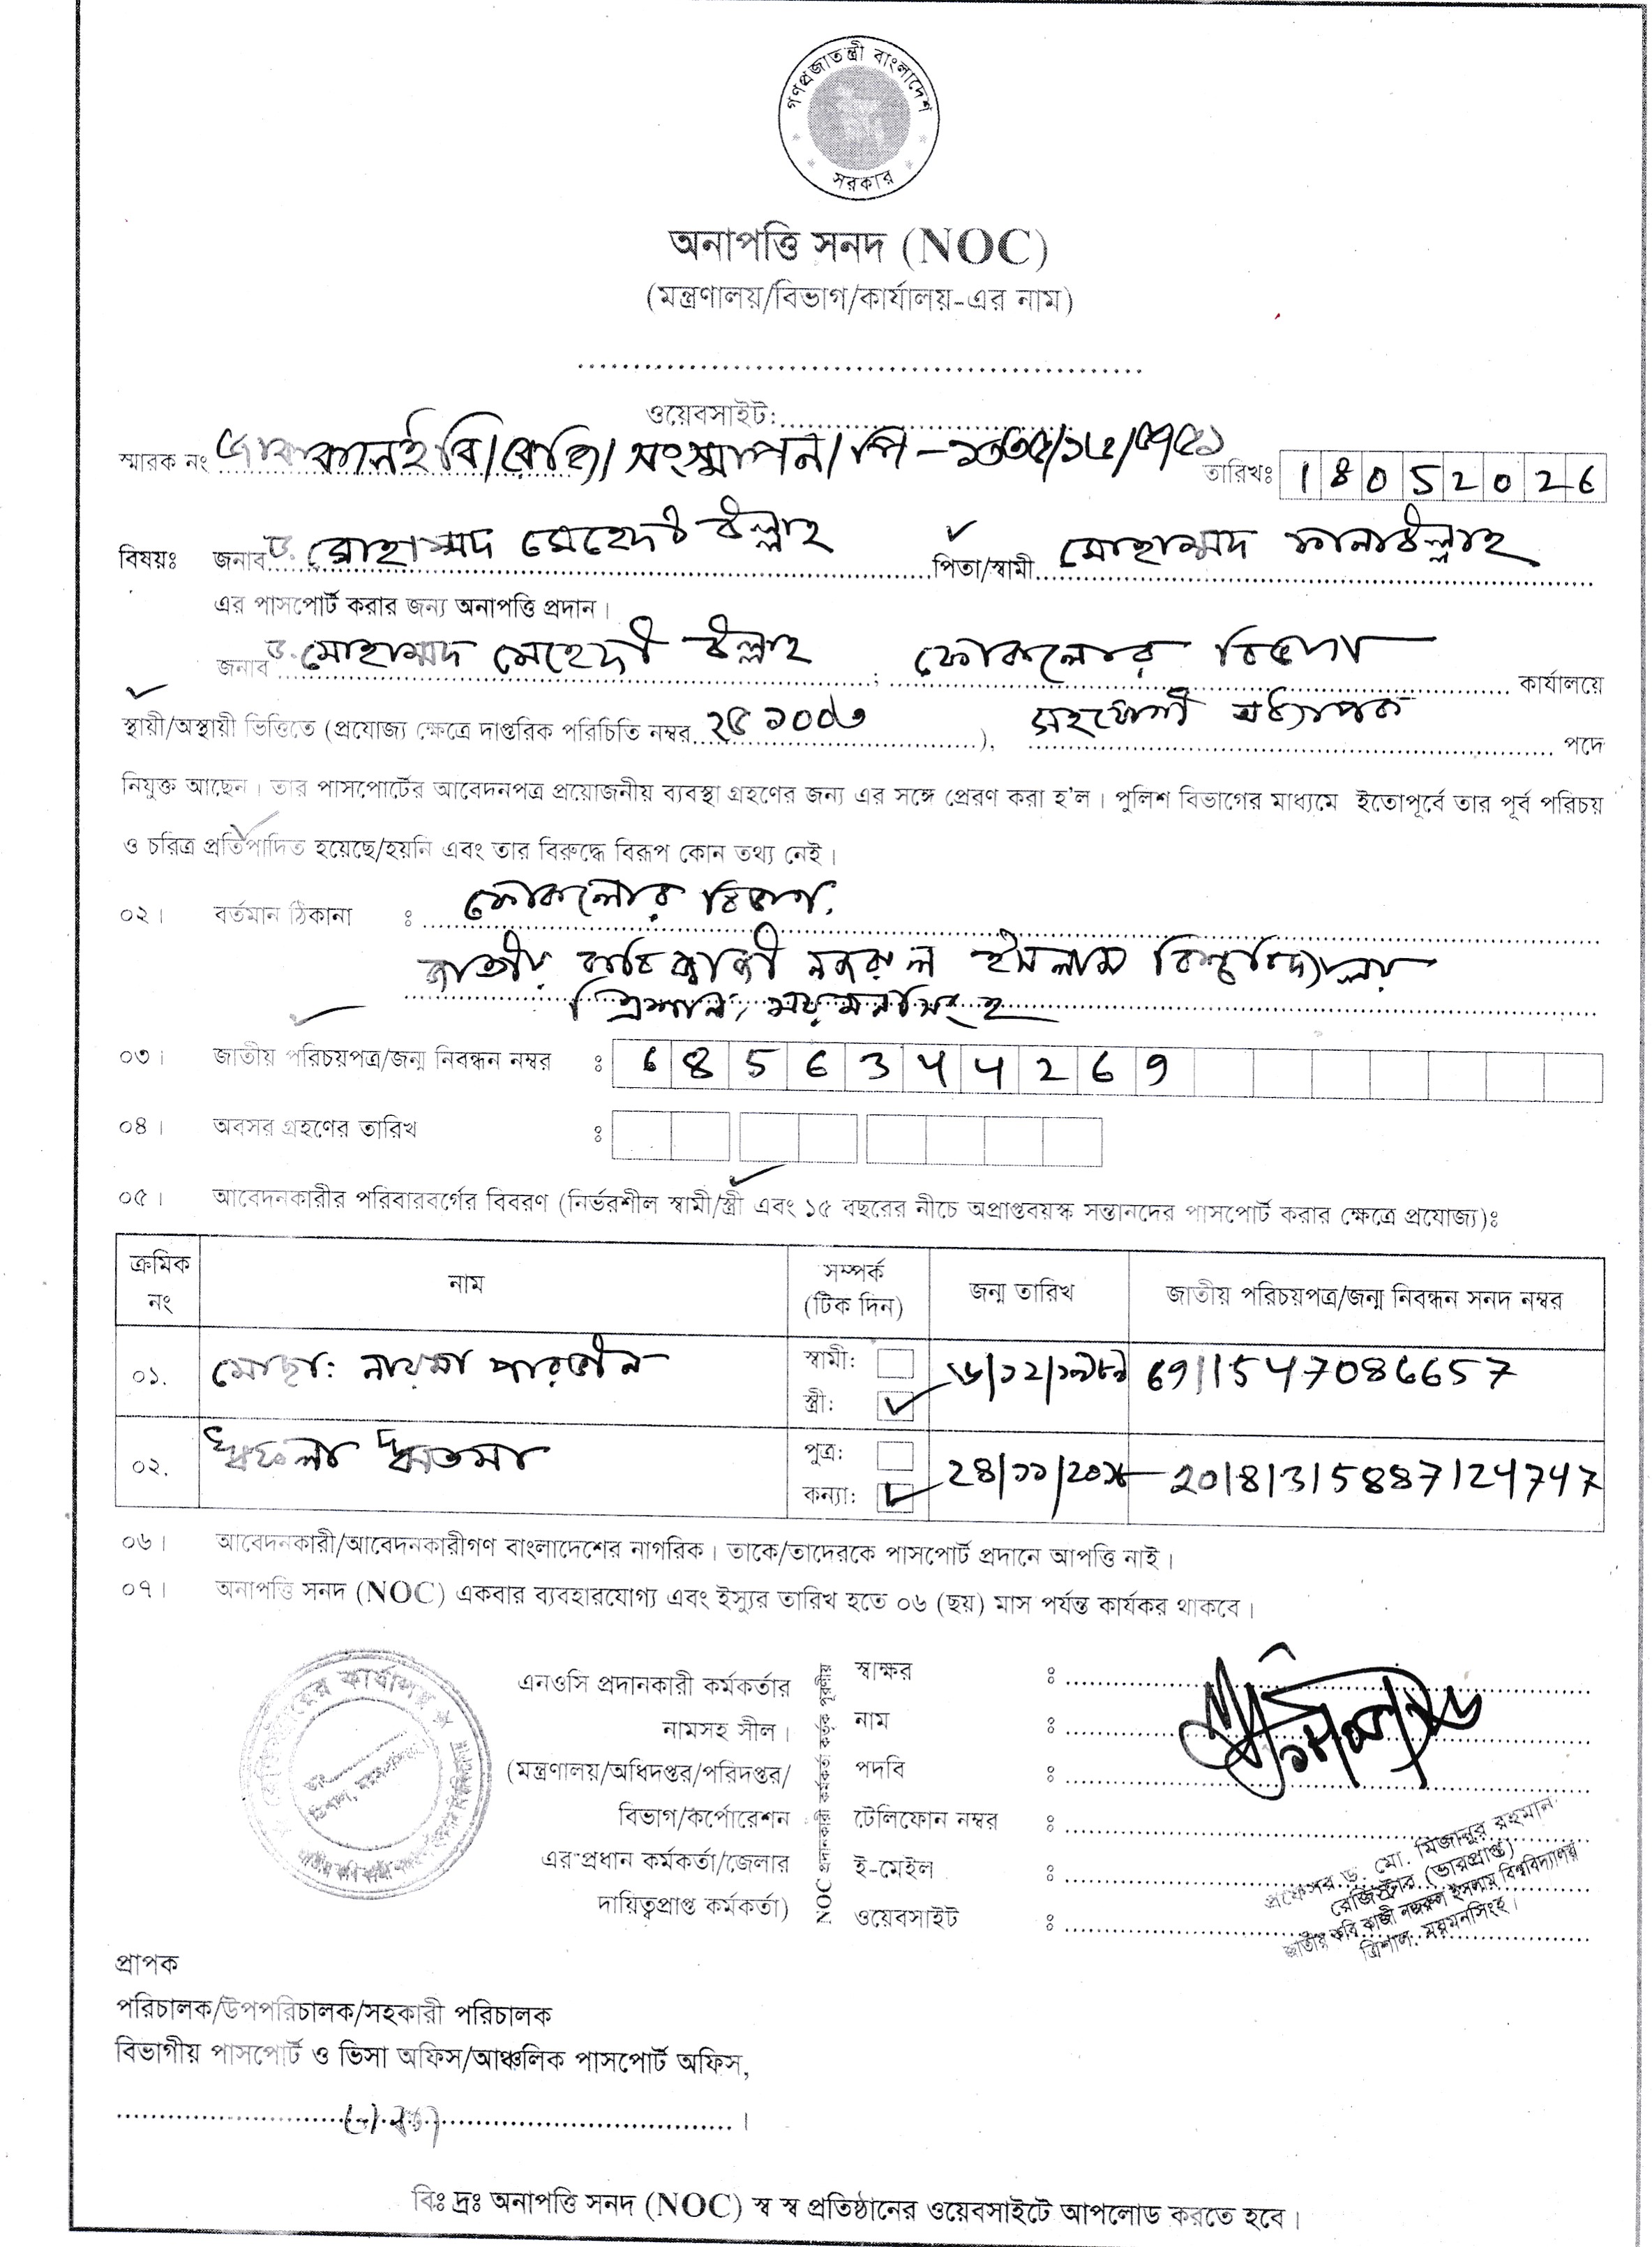 গণপ্রজাতন্ত্রী বাংলাদেশ
সরকার
অনাপত্তি সনদ (NOC)
(মন্ত্রণালয়/বিভাগ/কার্যালয়-এর নাম)
ওয়েবসাইট:
স্মারক নং তারিখঃ 18052026
বিষয়ঃ জনাব ড. মোহাম্মদ মেহেদী উল্লাহ পিতা/স্বামী মোহাম্মদ
এর পাসপোর্ট করার জন্য অনাপত্তি প্রদান।
জনাব ড. মোহাম্মদ মেহেদী উল্লাহ ; ফোকলোর বিভাগ কার্যালয়ে
স্থায়ী/অস্থায়ী ভিত্তিতে (প্রযোজ্য ক্ষেত্রে দাপ্তরিক পরিচিতি নম্বর ), সহযোগী অধ্যাপক পদে
নিযুক্ত আছেন। তার পাসপোর্টের আবেদনপত্র প্রয়োজনীয় ব্যবস্থা গ্রহণের জন্য এর সঙ্গে প্রেরণ করা হ'ল। পুলিশ বিভাগের মাধ্যমে ইতোপূর্বে তার পূর্ব পরিচয়
ও চরিত্র প্রতিপাদিত হয়েছে/হয়নি এবং তার বিরুদ্ধে বিরূপ কোন তথ্য নেই।
০২। বর্তমান ঠিকানা : ফোকলোর বিভাগ,
জাতীয় কবি কাজী নজরুল ইসলাম বিশ্ববিদ্যালয়
ত্রিশাল, ময়মনসিংহ
০৩। জাতীয় পরিচয়পত্র/জন্ম নিবন্ধন নম্বর : 6856344269
০৪। অবসর গ্রহণের তারিখ :
০৫। আবেদনকারীর পরিবারবর্গের বিবরণ (নির্ভরশীল স্বামী/স্ত্রী এবং ১৫ বছরের নীচে অপ্রাপ্তবয়স্ক সন্তানদের পাসপোর্ট করার ক্ষেত্রে প্রযোজ্য)ঃ
ক্রমিক নং নাম সম্পর্ক (টিক দিন) জন্ম তারিখ জাতীয় পরিচয়পত্র/জন্ম নিবন্ধন সনদ নম্বর
০১. মোছা: নায়মা পারভীন স্বামী:
স্ত্রী: 
০২. পুত্র:
কন্যা: 
০৬। আবেদনকারী/আবেদনকারীগণ বাংলাদেশের নাগরিক। তাকে/তাদেরকে পাসপোর্ট প্রদানে আপত্তি নাই।
০৭। অনাপত্তি সনদ (NOC) একবার ব্যবহারযোগ্য এবং ইস্যুর তারিখ হতে ০৬ (ছয়) মাস পর্যন্ত কার্যকর থাকবে।
এনওসি প্রদানকারী কর্মকর্তার
নামসহ সীল।
(মন্ত্রণালয়/অধিদপ্তর/পরিদপ্তর/
বিভাগ/কর্পোরেশন
এর প্রধান কর্মকর্তা/জেলার
দায়িত্বপ্রাপ্ত কর্মকর্তা)
NOC প্রদানকারী কর্মকর্তা কর্তৃক পূরণীয়
স্বাক্ষর :
নাম :
পদবি :
টেলিফোন নম্বর :
ই-মেইল :
ওয়েবসাইট :
প্রফেসর ড. মো. মিজানুর রহমান
রেজিস্ট্রার (ভারপ্রাপ্ত)
জাতীয় কবি কাজী নজরুল ইসলাম বিশ্ববিদ্যালয়
ত্রিশাল, ময়মনসিংহ।
প্রাপক
পরিচালক/উপপরিচালক/সহকারী পরিচালক
বিভাগীয় পাসপোর্ট ও ভিসা অফিস/আঞ্চলিক পাসপোর্ট অফিস,
বিঃ দ্রঃ অনাপত্তি সনদ (NOC) স্ব স্ব প্রতিষ্ঠানের ওয়েবসাইটে আপলোড করতে হবে।